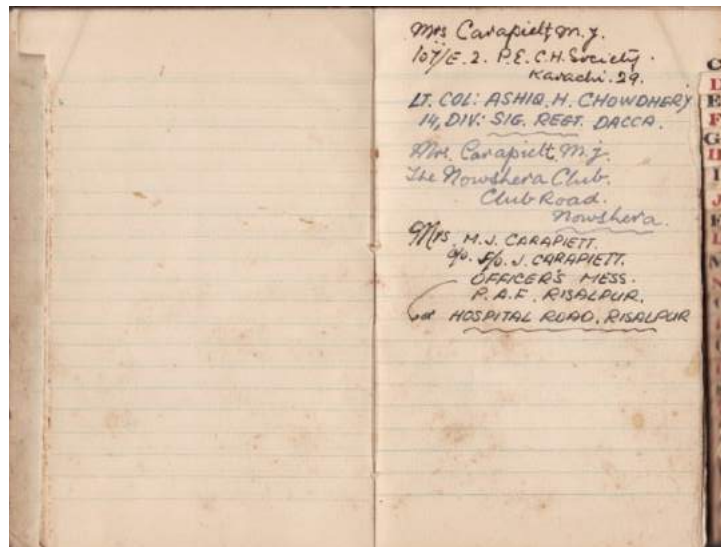 Mrs Carapiett, M.J.
107/E. 2. P.E.C.H. Society.
Karachi. 29.
LT. COL: ASHIQ. H. CHOWDHERY
14, DIV: SIG. REGT. DACCA.
Mrs. Carapiett, M.J.
The Nowshera Club.
Club Road.
Nowshera.
Mrs. M.J. CARAPIETT.
c/o. F/O. J. CARAPIETT.
OFFICER'S MESS.
P.A.F. RISALPUR.
or HOSPITAL ROAD, RISALPUR
C
D
E
F
G
H
I
J
K
L
M
N